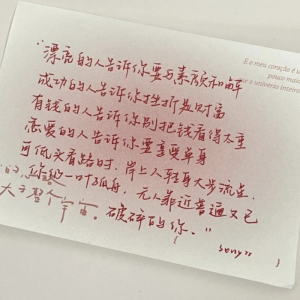 E o meu coração é u
pouco maio
o universo inteir
“漂亮的人告诉你要与素颜和解
成功的人告诉你挫折是财富
有钱的人告诉你别把钱看得太重
恋爱的人告诉你要享受单身
可低头看路时，岸上人轻身大步流星，
一叶孤舟，无人靠近普通又已
大于整个宇宙。破碎的你。”